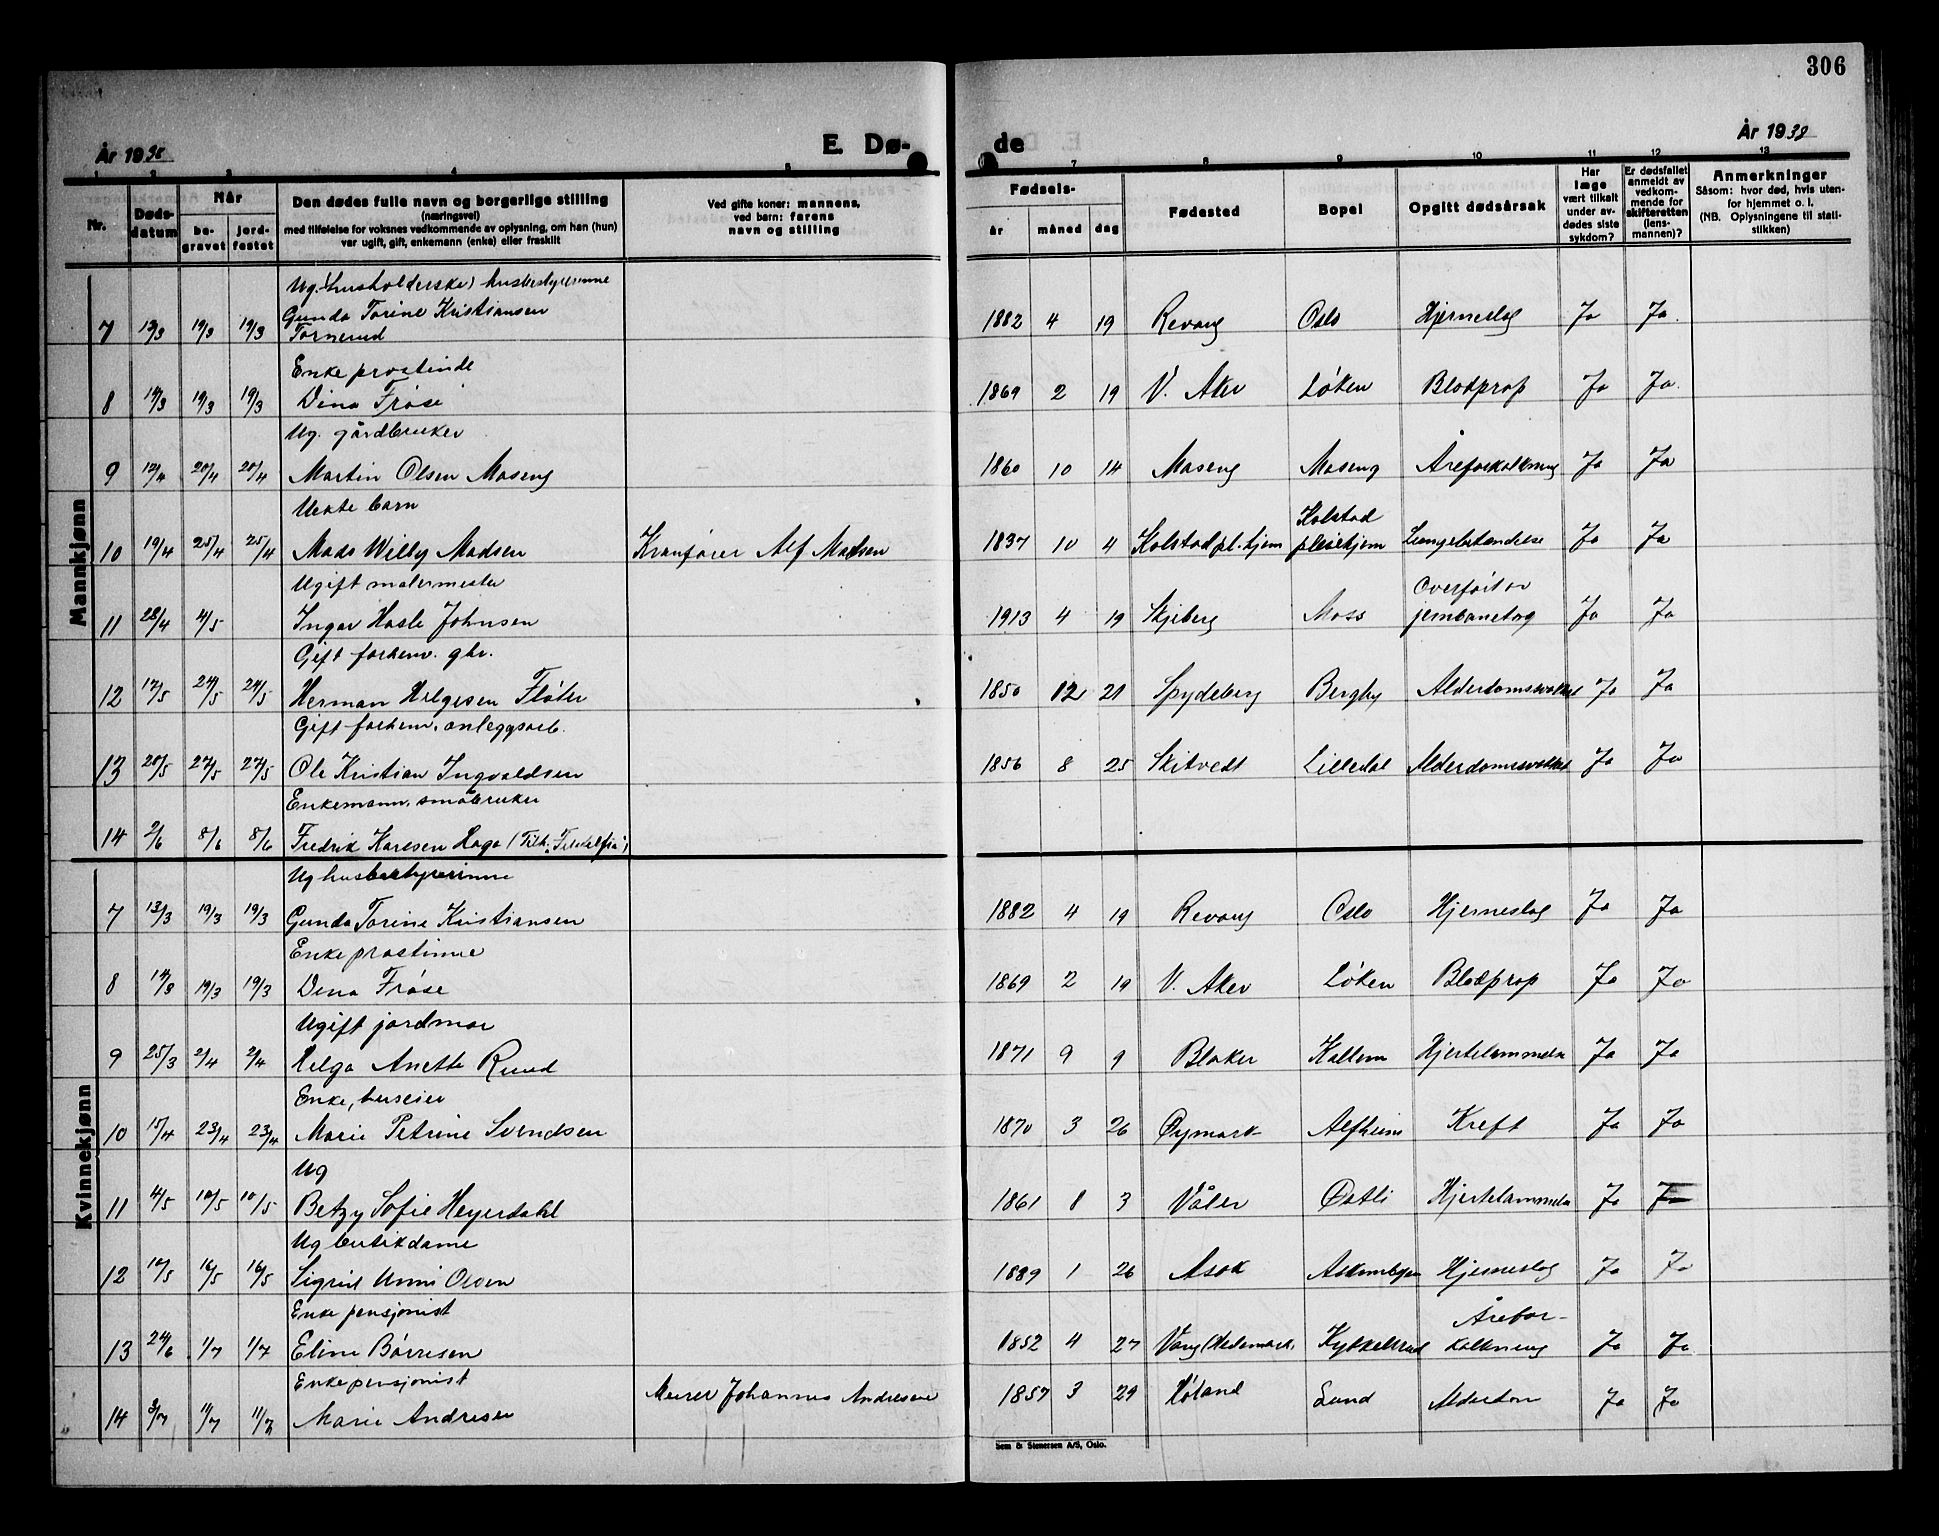 306
År 1938
E. Dø-
de
År 1938
1 2 3 4 5
7 8 9 10 11 12 13
Nr.
Døds-
datum
Når
be-
gravet
jord-
festet
Den dødes fulle navn og borgerlige stilling
(næringsvei)
med tilføielse for voksnes vedkommende av oplysning, om han (hun)
var ugift, gift, enkemann (enke) eller fraskilt
Ved gifte koner: mannens,
ved barn: farens
navn og stilling
Fødsels-
år måned dag
Fødested
Bopel
Opgitt dødsårsak
Har
læge
vært tilkalt
under av-
dødes siste
sykdom?
Er dødsfallet
anmeldt av
vedkom-
mende for
skifteretten
(lens-
mannen)?
Anmerkninger
Såsom: hvor død, hvis uten-
for hjemmet o. l.
(NB. Oplysningene til stati-
stikken)
Mannkjønn
Ug. (husholderske) husbestyrerinne
Gunda Torine Kristiansen
7 13/3 19/3 19/3 Tornerud 1882 4 19 Revaug Oslo Hjerneslag Ja Ja.
Enke prostinde
8 14/3 19/3 19/3 Dina Frøse 1869 2 19 V. Aker Løken Blodprop Ja Ja.
Ug. gårdbruker
9 12/4 20/4 20/4 Martin Olsen Maseng 1860 10 14 Maseng Maseng Åreforkalkning Ja Ja
Uekte barn
Kolstad
10 19/4 25/4 25/4 Mads Willy Madsen Kranfører Alf Madsen 1837 10 4 Kolstad pl.hjem pleiehjem Lungebetendelse Ja Ja
Ugift malermester
Overført av
11 28/4 4/5 Ingar Hasle Johnsen 1913 4 19 Skjeberg Moss jernbanetog Ja Ja
Gift forhenv. gbr.
12 17/5 24/5 24/5 Herman Helgesen Fløter 1850 12 21 Spydeberg Bergby Alderdomssvakhet Ja Ja
Gift forhenv. anleggsarb.
13 20/5 27/5 27/5 Ole Kristian Ingvaldsen 1856 8 25 Skitvedt Lilledal Alderdomssvakhet Ja Ja
Enkemann, småbruker
14 2/6 8/6 8/6 Fredrik Karlsen Haga
Kvinnekjønn
Ug husbestyrerinne
7 13/3 19/3 19/3 Gunda Torine Kristiansen 1882 4 19 Revaug Oslo Hjerneslag Ja Ja
Enke prostinne
8 14/3 19/3 19/3 Dina Frøse 1869 2 19 V. Aker Løken Blodprop Ja Ja
Ugift jordmor
9 25/3 2/4 2/4 Helga Anette Ruud 1871 9 9 Blaker Kallum Hjertelammelse Ja Ja
Enke, huseier
10 15/4 23/4 23/4 Marie Petrine Svendsen 1870 3 26 Øymark Alfheim Kreft Ja Ja
Ug
11 4/5 10/5 10/5 Betzy Sofie Heyerdahl 1861 8 3 Våler Østli Hjertelammelse Ja Ja
Ug butikdame
12 10/5 16/5 16/5 Sigrid Unni Olsen 1889 1 26 Asak Askimbyen Hjerneslag Ja Ja
Enke pensjonist
Årefor-
13 24/6 1/7 1/7 Eline Børresen 1852 4 27 Vang (Hedemark) Kykkelsrud kalkning Ja Ja
Enke pensjonist
14 3/7 11/7 11/7 Marie Andresen Murer Johannes Andresen 1857 3 29 Høland Lund Alderdom Ja Ja
Sem & Stenersen A/S, Oslo.